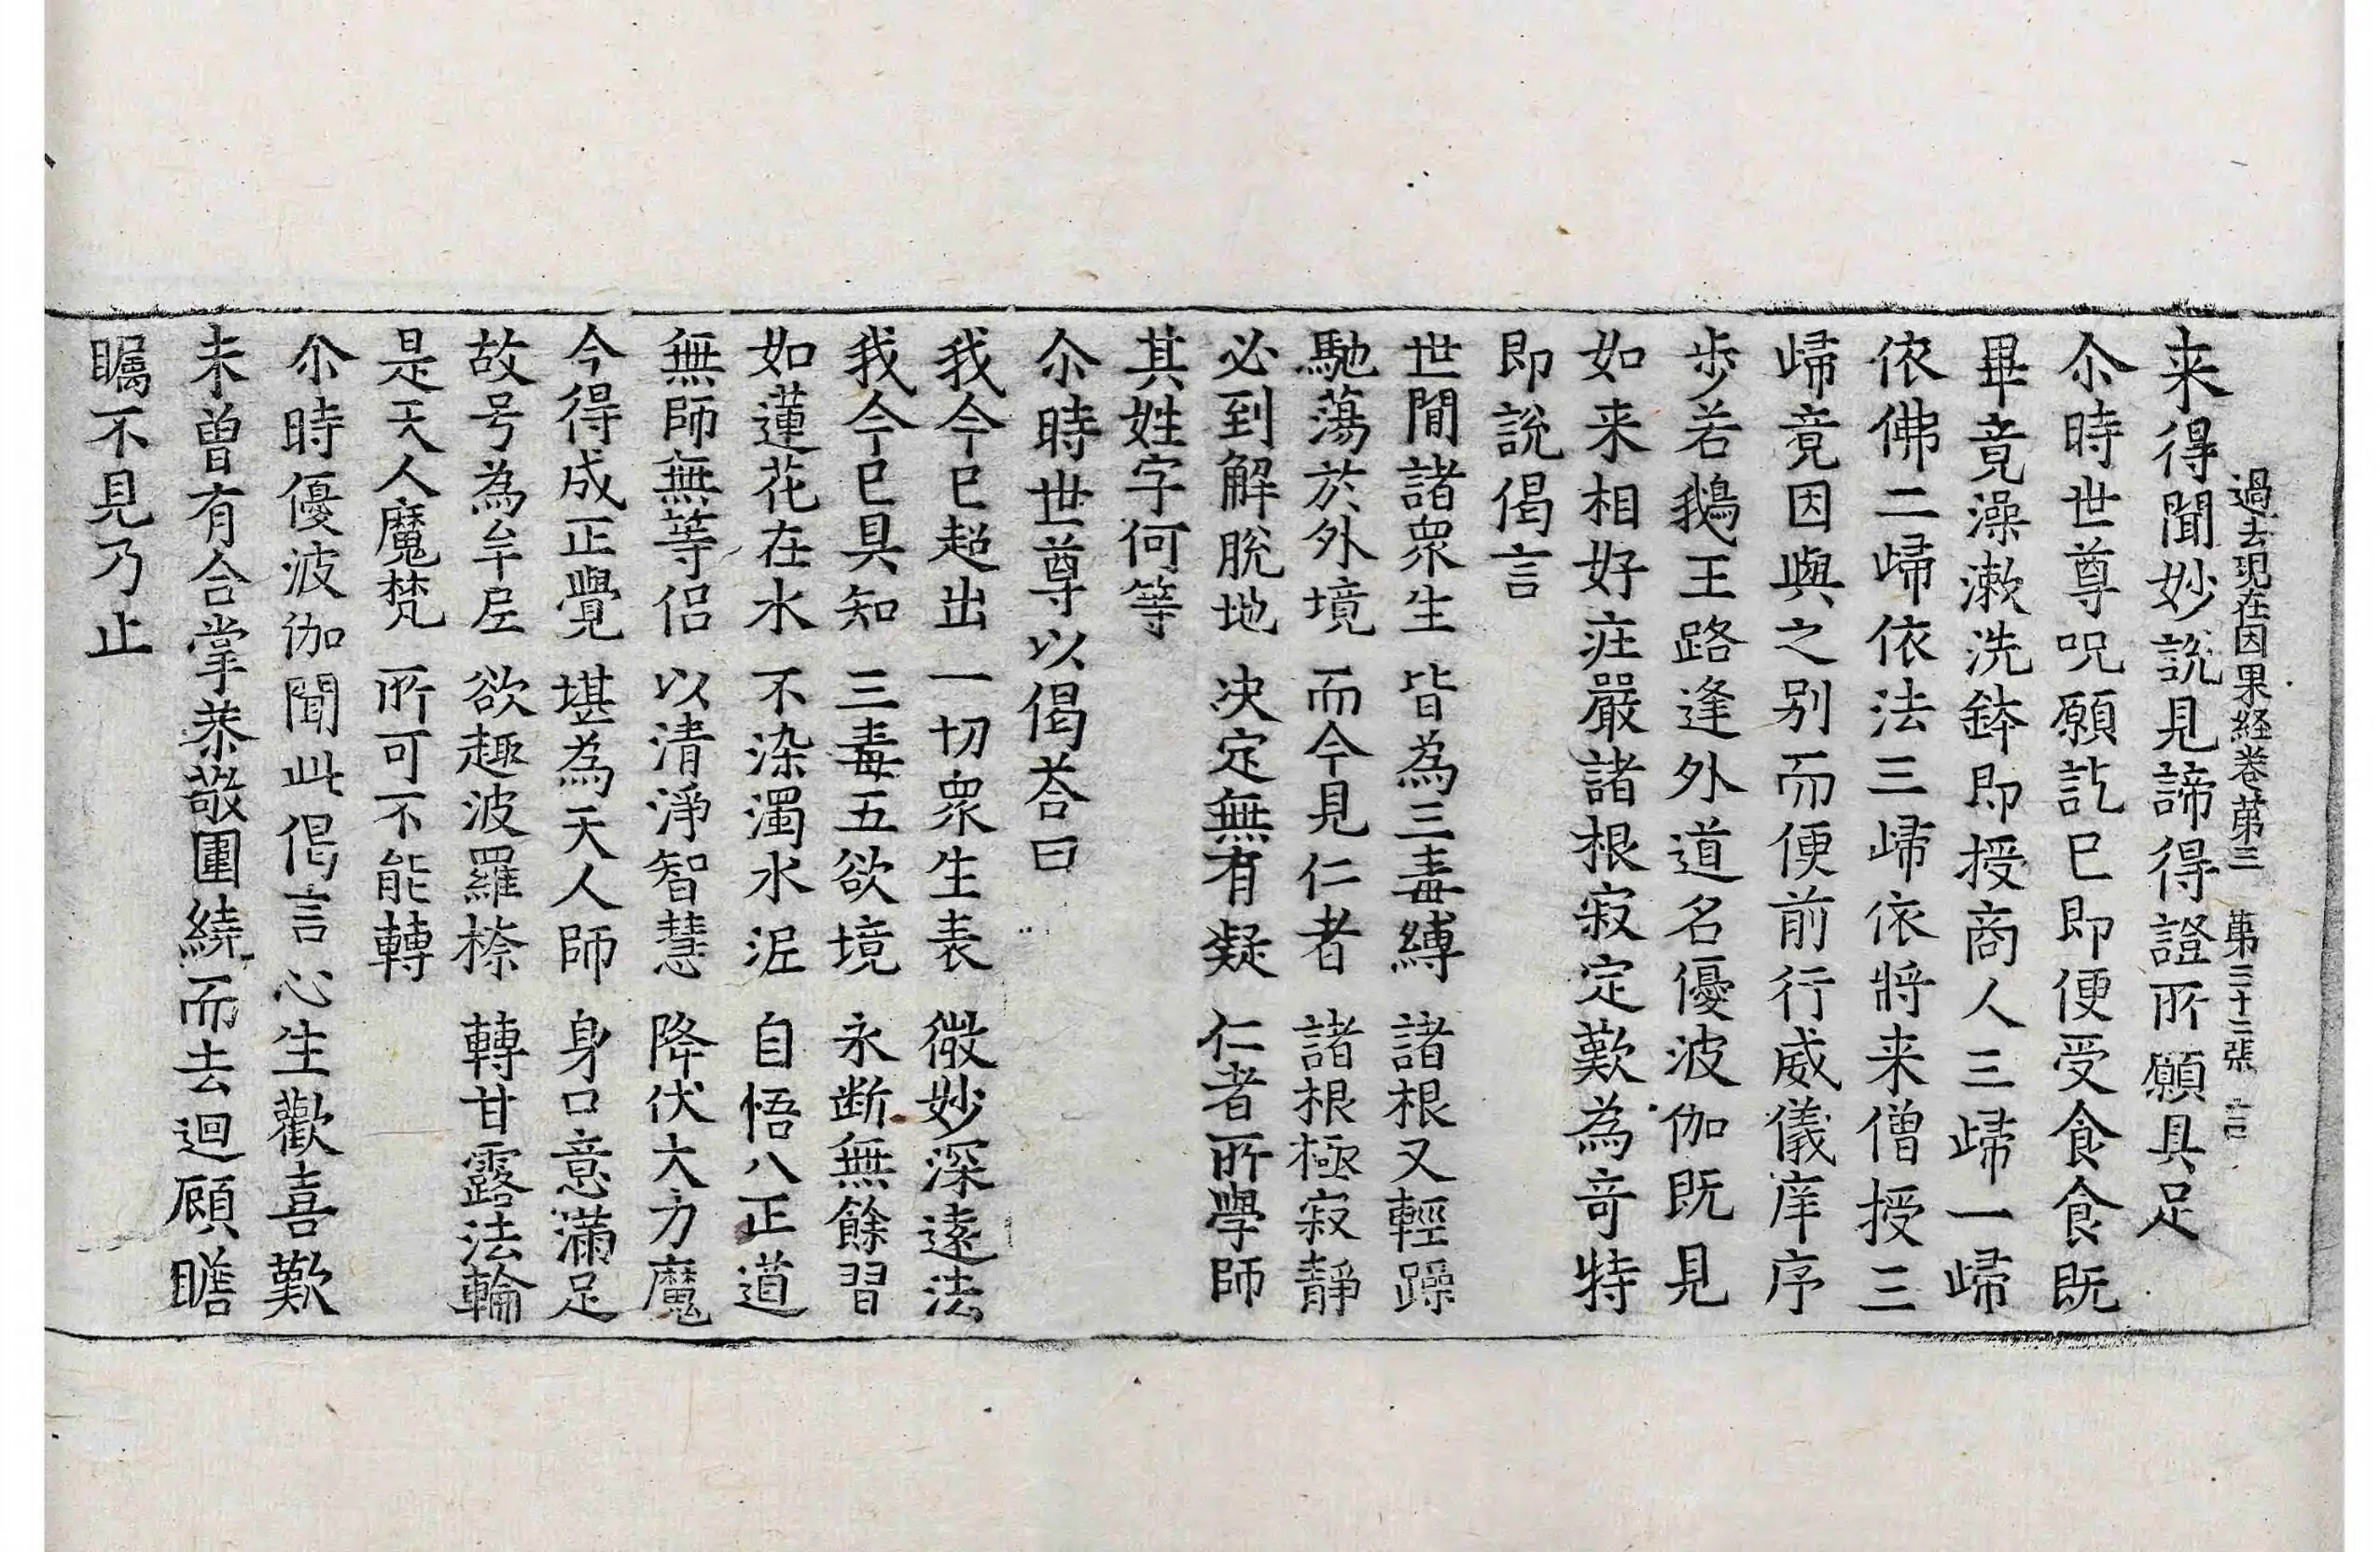 過去現在因果経巻苐三　苐三十二張　言
来得聞妙説見諦得證所願具足
尒時世尊呪願訖已即便受食食既
畢竟澡漱洗鉢即授商人三歸一歸
依佛二歸依法三歸依將来僧授三
歸竟因與之别而便前行威儀庠序
步若鵝王路逢外道名優波伽既見
如来相好庄嚴諸根寂定歎為奇特
即說偈言
世間諸衆生　皆為三毒縛　諸根又輕躁
馳蕩於外境　而今見仁者　諸根極寂靜
必到解脫地　决定無有疑　仁者所學師
其姓字何等
尒時世尊以偈荅曰
我今已超出　一切衆生表　微妙深遠法
我今已具知　三毒五欲境　永断無餘習
如蓮花在水　不染濁水泥　自悟八正道
無師無等侶　以清淨智慧　降伏大力魔
今得成正覺　堪為天人師　身口意滿足
故号為牟尼　欲趣波羅㮈　轉甘露法輪
是天人魔梵　所可不能轉
尒時優波伽聞此偈言心生歡喜歎
未曽有合掌恭敬圍繞而去迴顧瞻
矚不見乃止